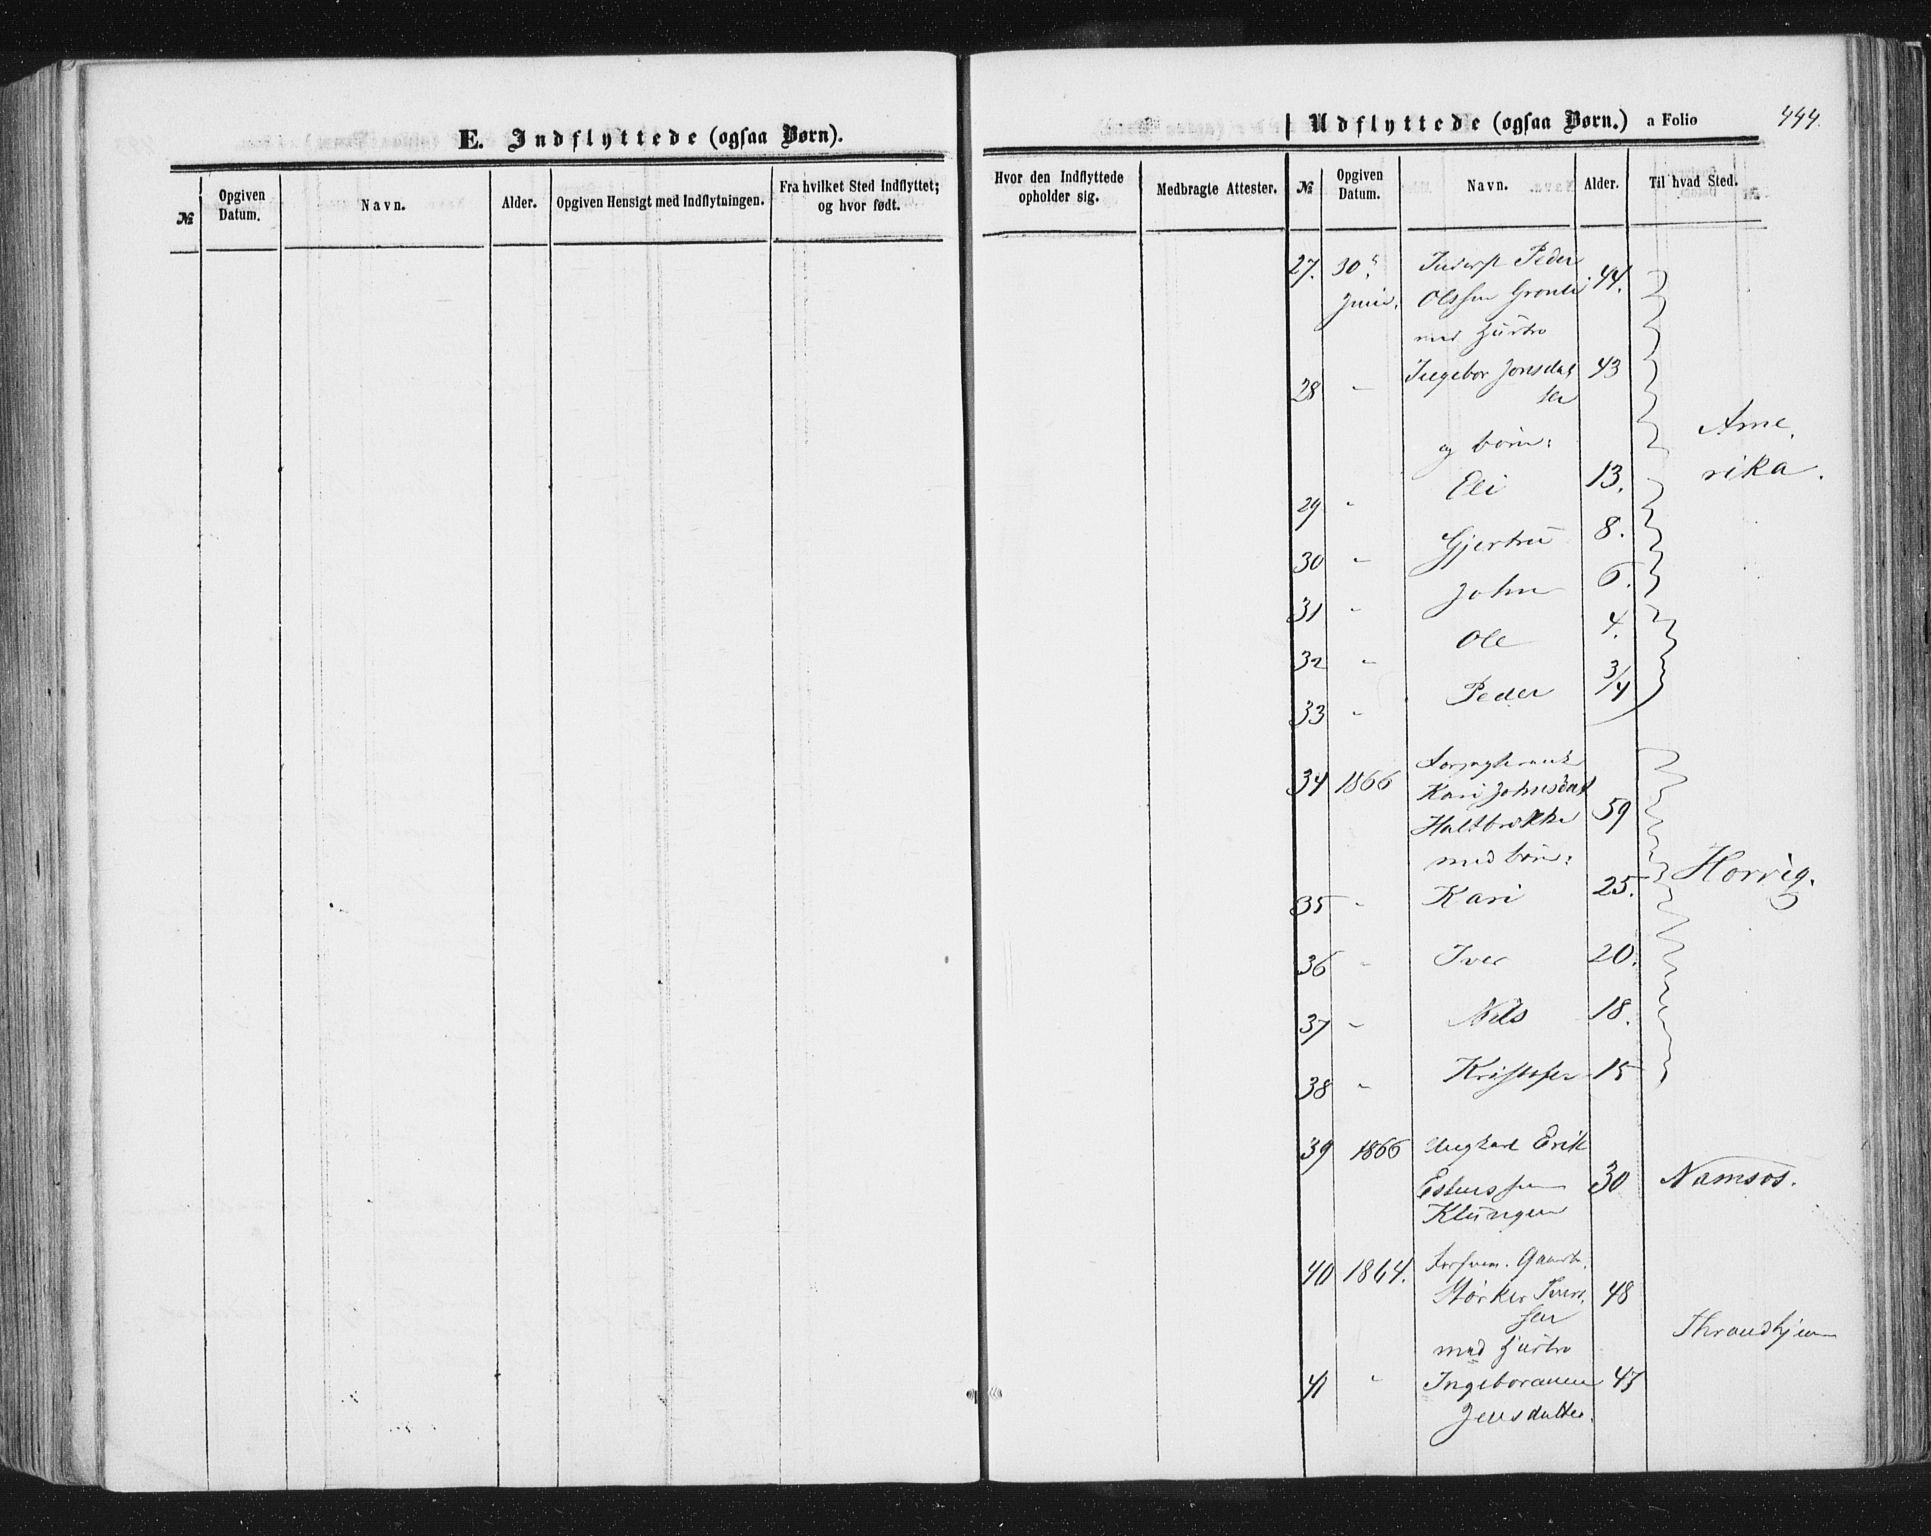 E. Indflyttede (ogsaa Børn).
№
Opgiven Datum.
Navn.
Alder.
Opgiven Hensigt med Indflytningen.
Fra hvilket Sted Indflyttet; og hvor født.
Hvor den Indflyttede opholder sig.
Medbragte Attester.
Udflyttede (ogsaa Børn.) a Folio 444.
№
Opgiven Datum.
Navn.
Alder.
Til hvad Sted.
27. 30 Peder 44.
Juni. Olssen Grønli
med Hustro
28 - Ingebor Jonsdat 43
ter
Ame
og børn:
rika.
29 - Eli 13.
30 - Gjertru 8.
31 - John 6.
32 - Ole 4.
33 - Peder 3/4
34 1866
Kari Johnsdat
Haltbrække 59
med børn:
Horrig.
35 - Kari 25.
36 - Iver 20.
37 - Nils 18.
38 - Kristofer 15
39 1866 Ungkarl Erik
Estenssen 30 Namsos.
Klungen
40 1864. Gaardb.
Størker Ivers 48
sen
Thrandhjem
med Hustro
41 - 47
Jensdatter.